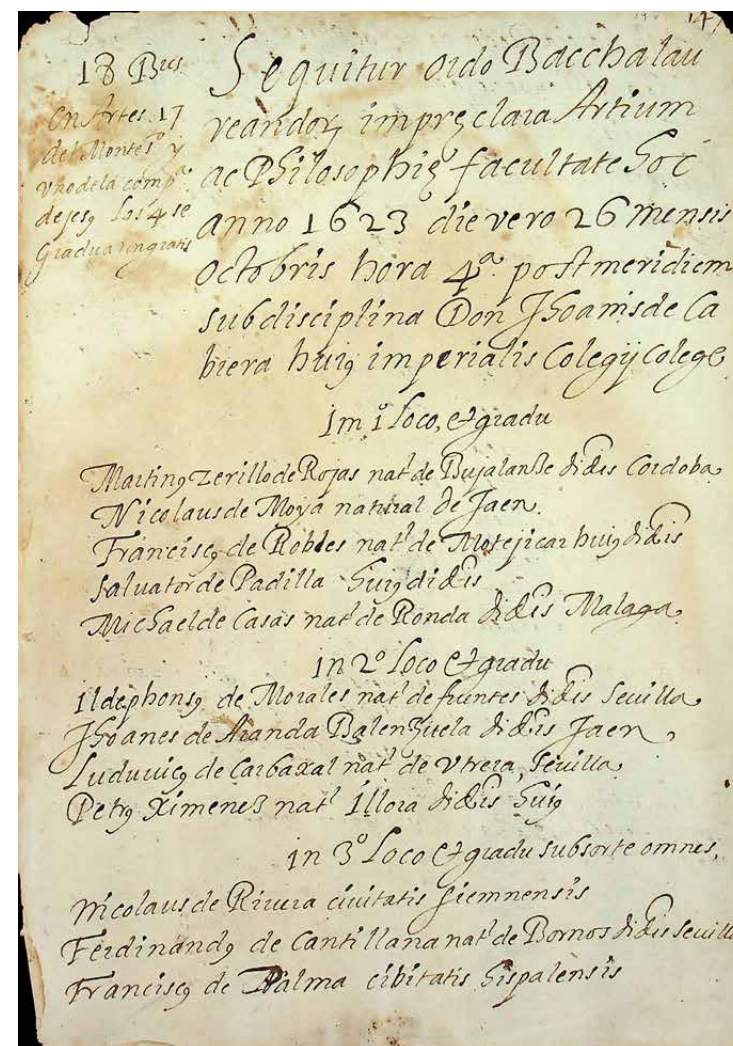 147
18 Bres.
en Artes. 17
del Monte sto y
vno de la compa.
de jesꝯ los 4 se
Gradua in gratis
Sequitur ordo Bacchalau
reandoꝝ in pręclara Artium
ac Philosophię facultate hoc
anno 1623 die vero 26 mensis
octobris hora 4ª. post meridiem
sub disciplina Don Jhoanis de Ca
biera huiꝯ imperialis Colegij Coleg
Im 1º loco, et gradu
Martinꝯ zerillo de Rojas natl de Bujalanße didis Cordoba,
Nicolaus de Moya natural de Jaen.
Franciscꝯ de Robles natl de Motejicar huiꝯ didis
Salvator de Padilla huiꝯ didis
Michael de Casas natl de Ronda didis Malaga,
in 2º loco et gradu
Ildephonsꝯ de Morales natl de fuentes didis Sevilla,
Jhoanes de Aranda Balenzuela didis Jaen,
Luduvicꝯ de Carbaxal natl de vtrera, Sevilla,
Petrꝯ Ximenez natl Illora didis huiꝯ
in 3º loco et gradu sub sorte omnes,
Nicolaus de Rivera civitatis giemnensis
Ferdinandꝯ de Cantillana natl de Bornos didis Sevilla
Franciscꝯ de Palma cibitatis hispalensis